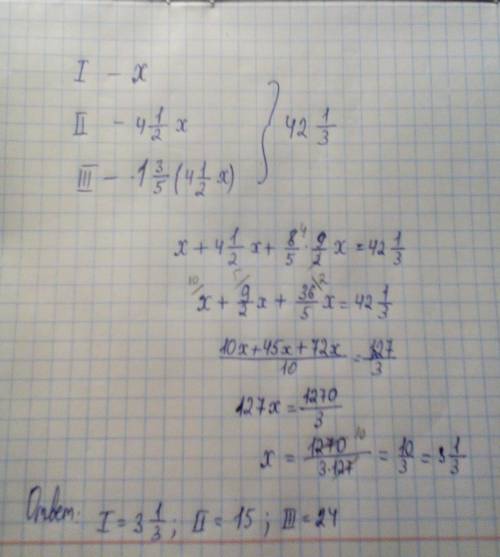 I – x
II – 4 1/2 x } 42 1/3
III – 1 3/5 (4 1/2 x)
x + 4 1/2 x + 8/5 · 9/2 x = 42 1/3
x + 9/2 x + 36/5 x = 42 1/3
(10x+45x+72x)/10 = 127/3
127x = 1270/3
x = 1270/(3·127) = 10/3 = 3 1/3
Ответ: I = 3 1/3; II = 15; III = 24